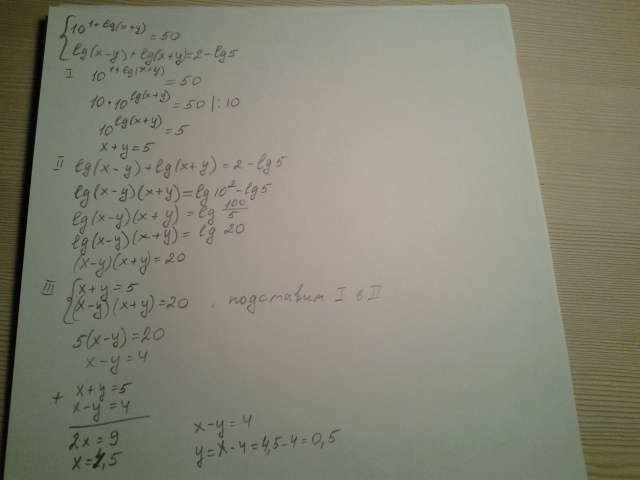 {10^(1+lg(x+y)) = 50
lg(x-y)+lg(x+y)=2-lg5
I 10^(1+lg(x+y)) = 50
10·10^(lg(x+y)) = 50 |:10
10^(lg(x+y)) = 5
x+y=5
II lg(x-y)+lg(x+y)=2-lg5
lg(x-y)(x+y)=lg10²-lg5
lg(x-y)(x+y)=lg 100/5
lg(x-y)(x+y)= lg 20
(x-y)(x+y)=20
III {x+y=5
(x-y)(x+y)=20 , подставим I в II
5(x-y)=20
x-y=4
+ x+y=5
x-y=4
2x=9
x=4,5
x-y=4
y=x-4=4,5-4=0,5